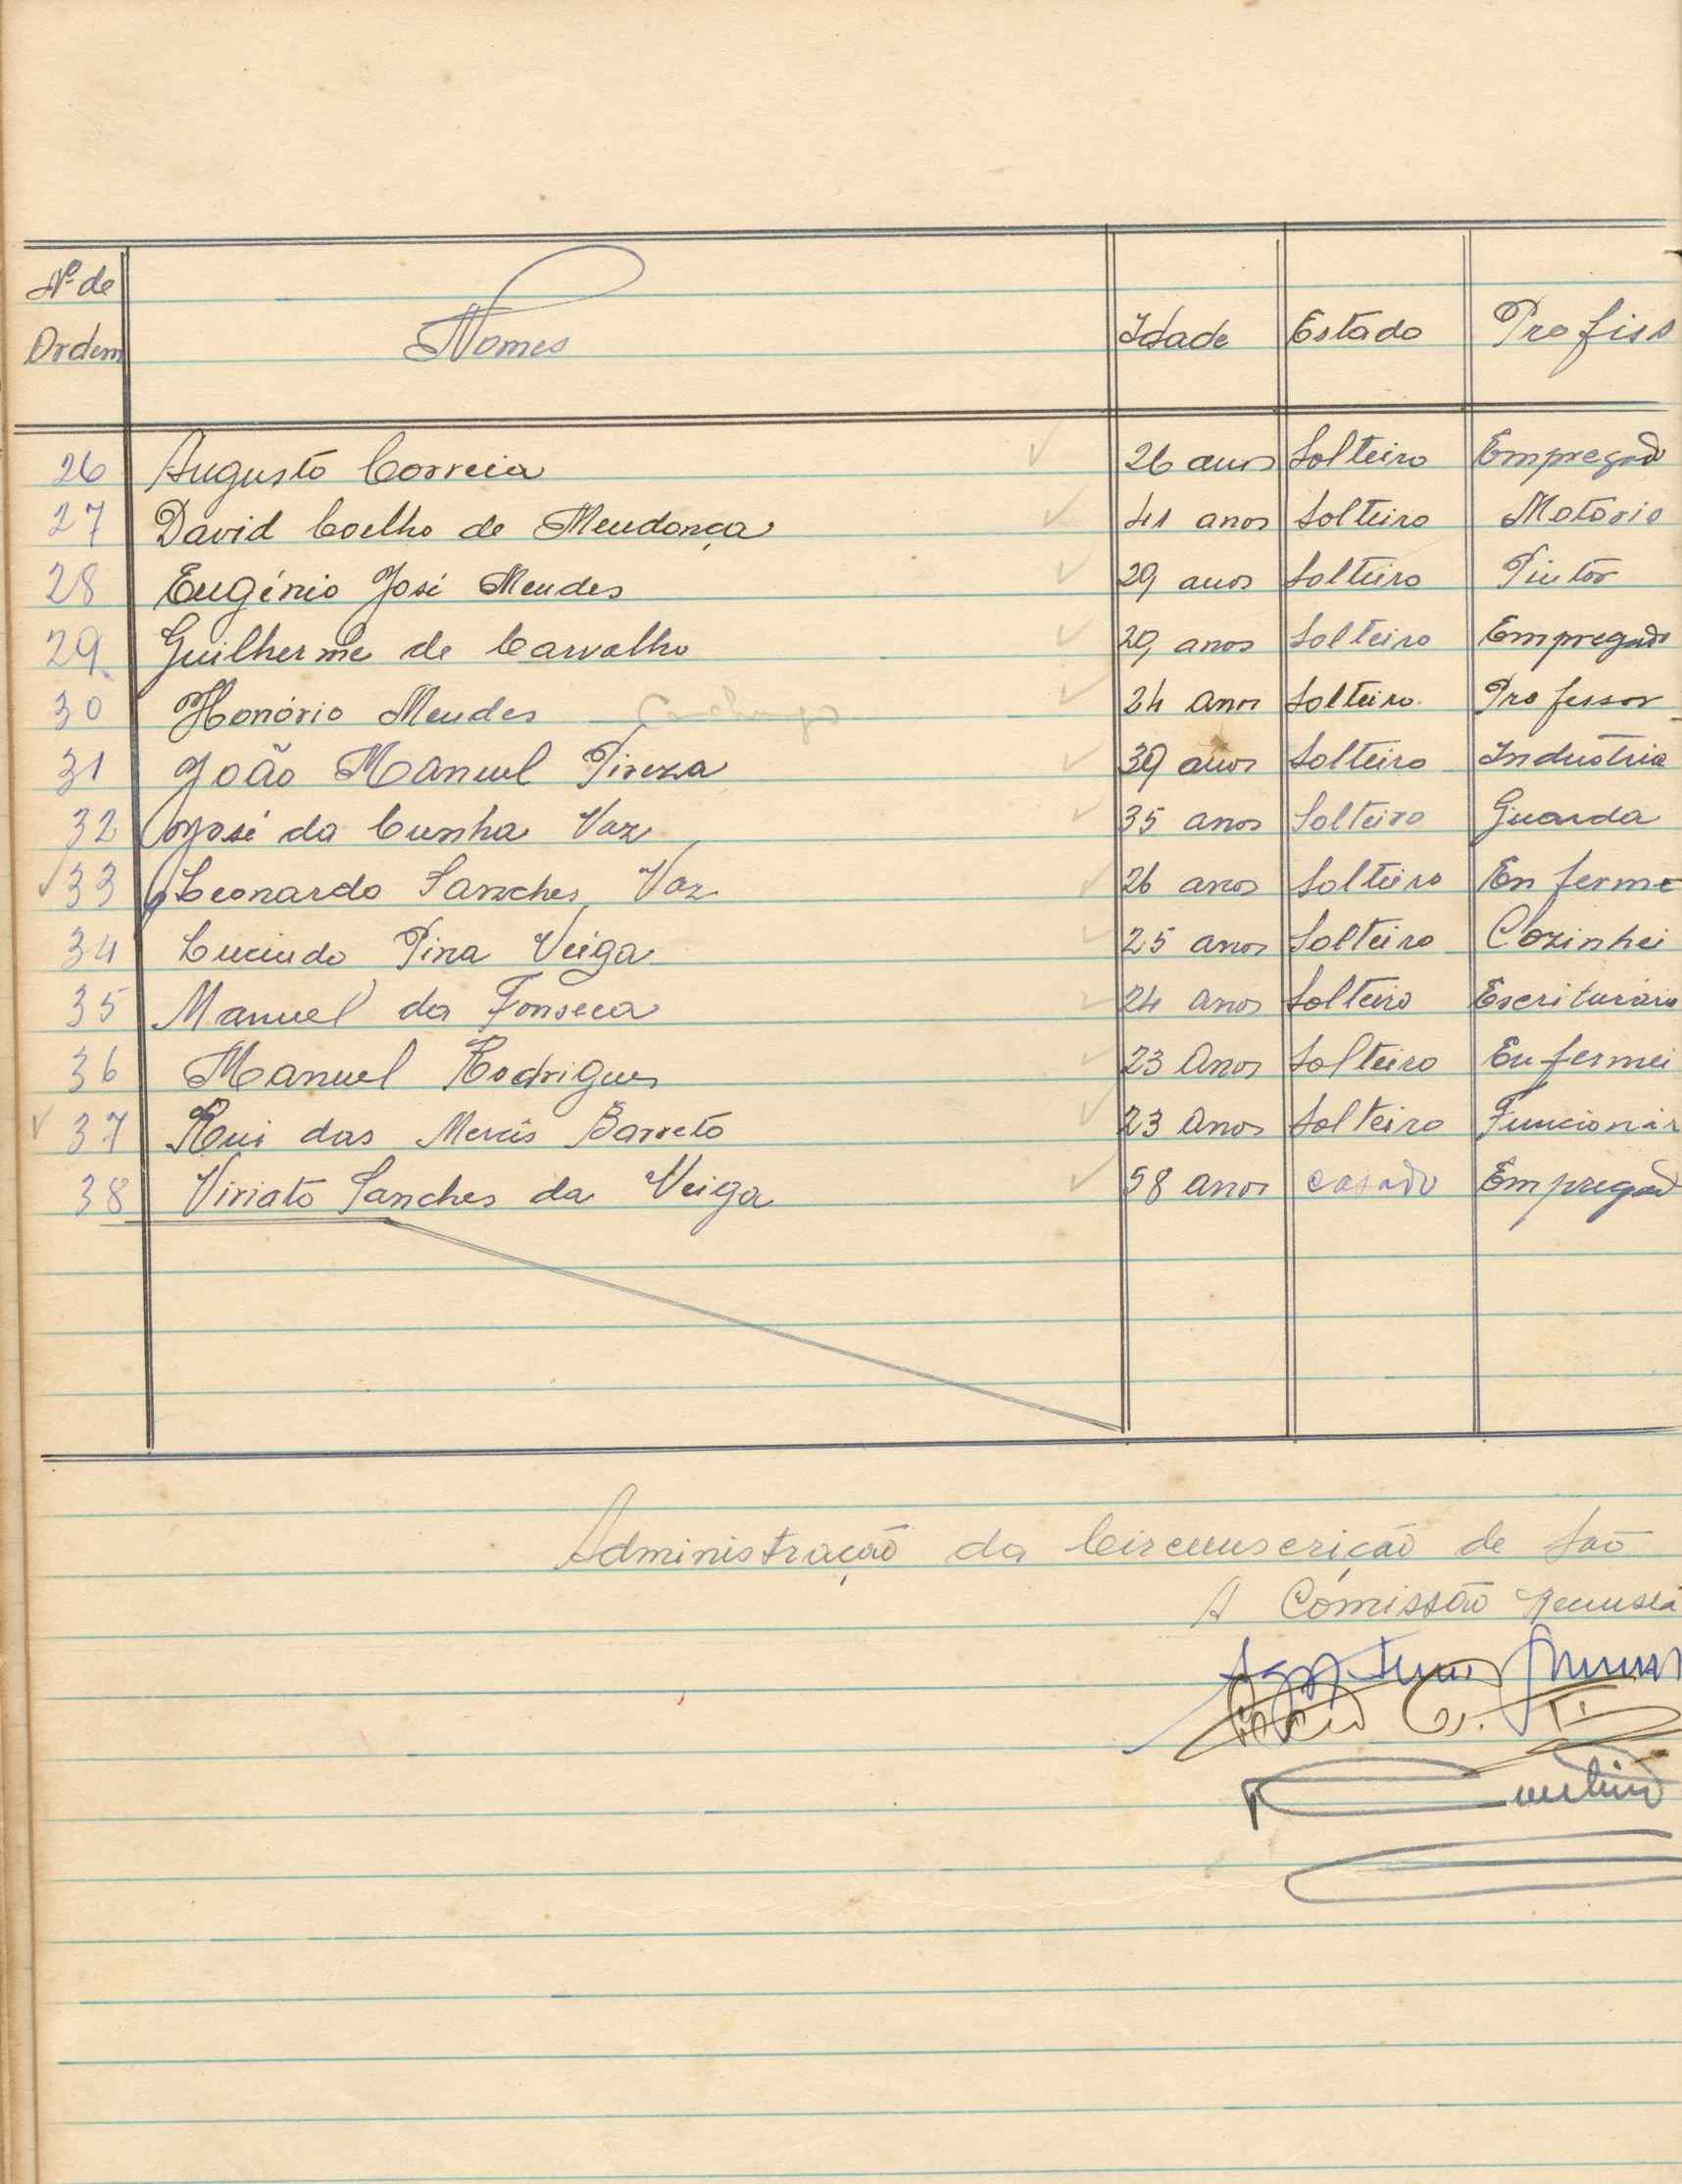 Nº de
Ordem Nomes Idade Estado Profiss
26 Augusto Correia 26 anos Solteiro Empregado
27 David Coelho de Mendonça 41 anos Solteiro Motoris
28 Eugénio José Mendes 29 anos Solteiro Pintor
29 Guilherme de Carvalho 29 anos Solteiro Empregado
30 Honório Mendes 24 anos Solteiro Professor
31 João Manuel Pireza 39 anos Solteiro Industria
32 José da Cunha Vaz 35 anos Solteiro Guarda
33 Leonardo Sanches Vaz 26 anos Solteiro Enferme
34 Lucindo Pina Veiga 25 anos Solteiro Cozinhei
35 Manuel da Fonseca 24 anos Solteiro Escriturário
36 Manuel Rodrigues 23 Anos Solteiro Enfermei
37 Rui das Mercês Barreto 23 Anos Solteiro Funcionár
38 Viriato Sanches da Veiga 58 anos casado Empregad
Administração da Circunscrição de São
A Comissão Recensea